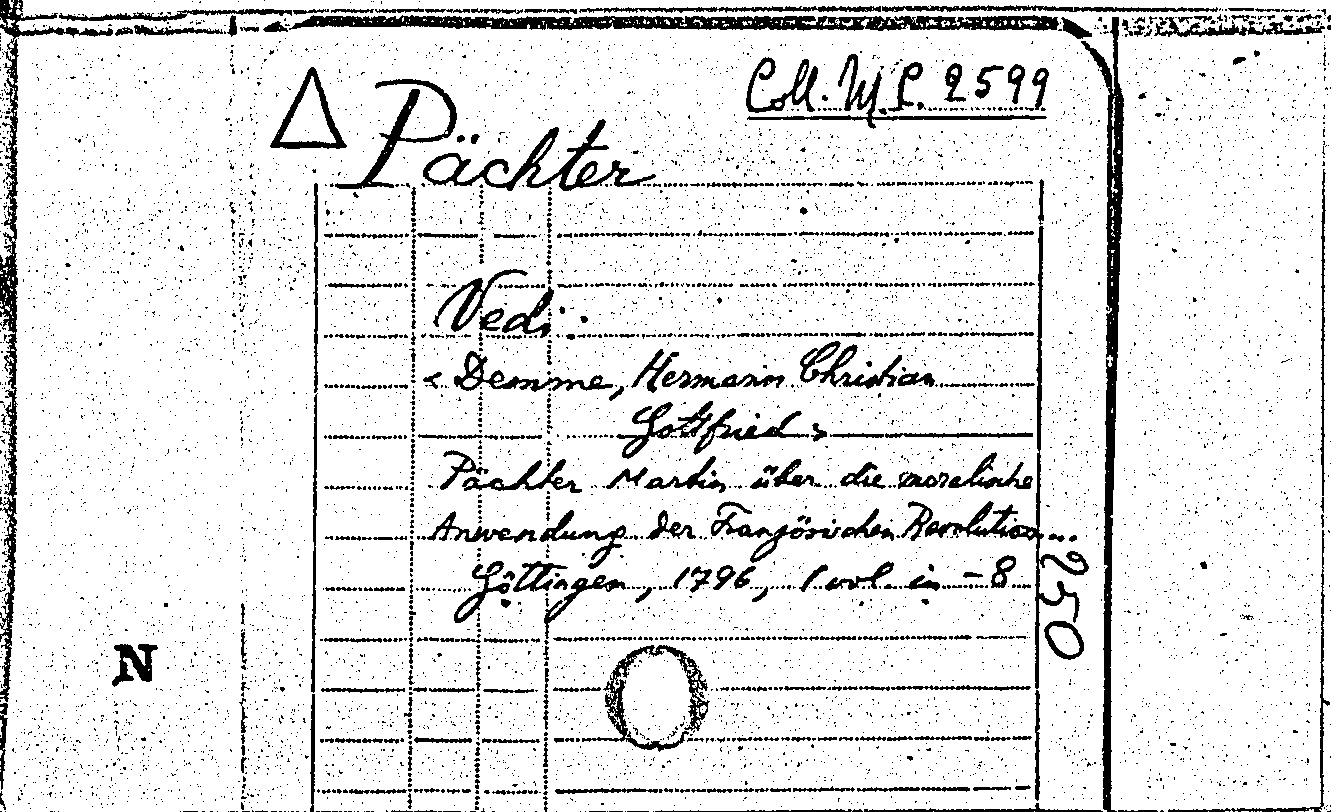 Coll. M. P. 2599
Pächter
Vedi:
< Demme, Hermann Christian
Gottfried >
Pächter Martin über die moralische
Anwendung der Französischen Revolution...
Göttingen, 1796, 1 vol. in -8
250
N